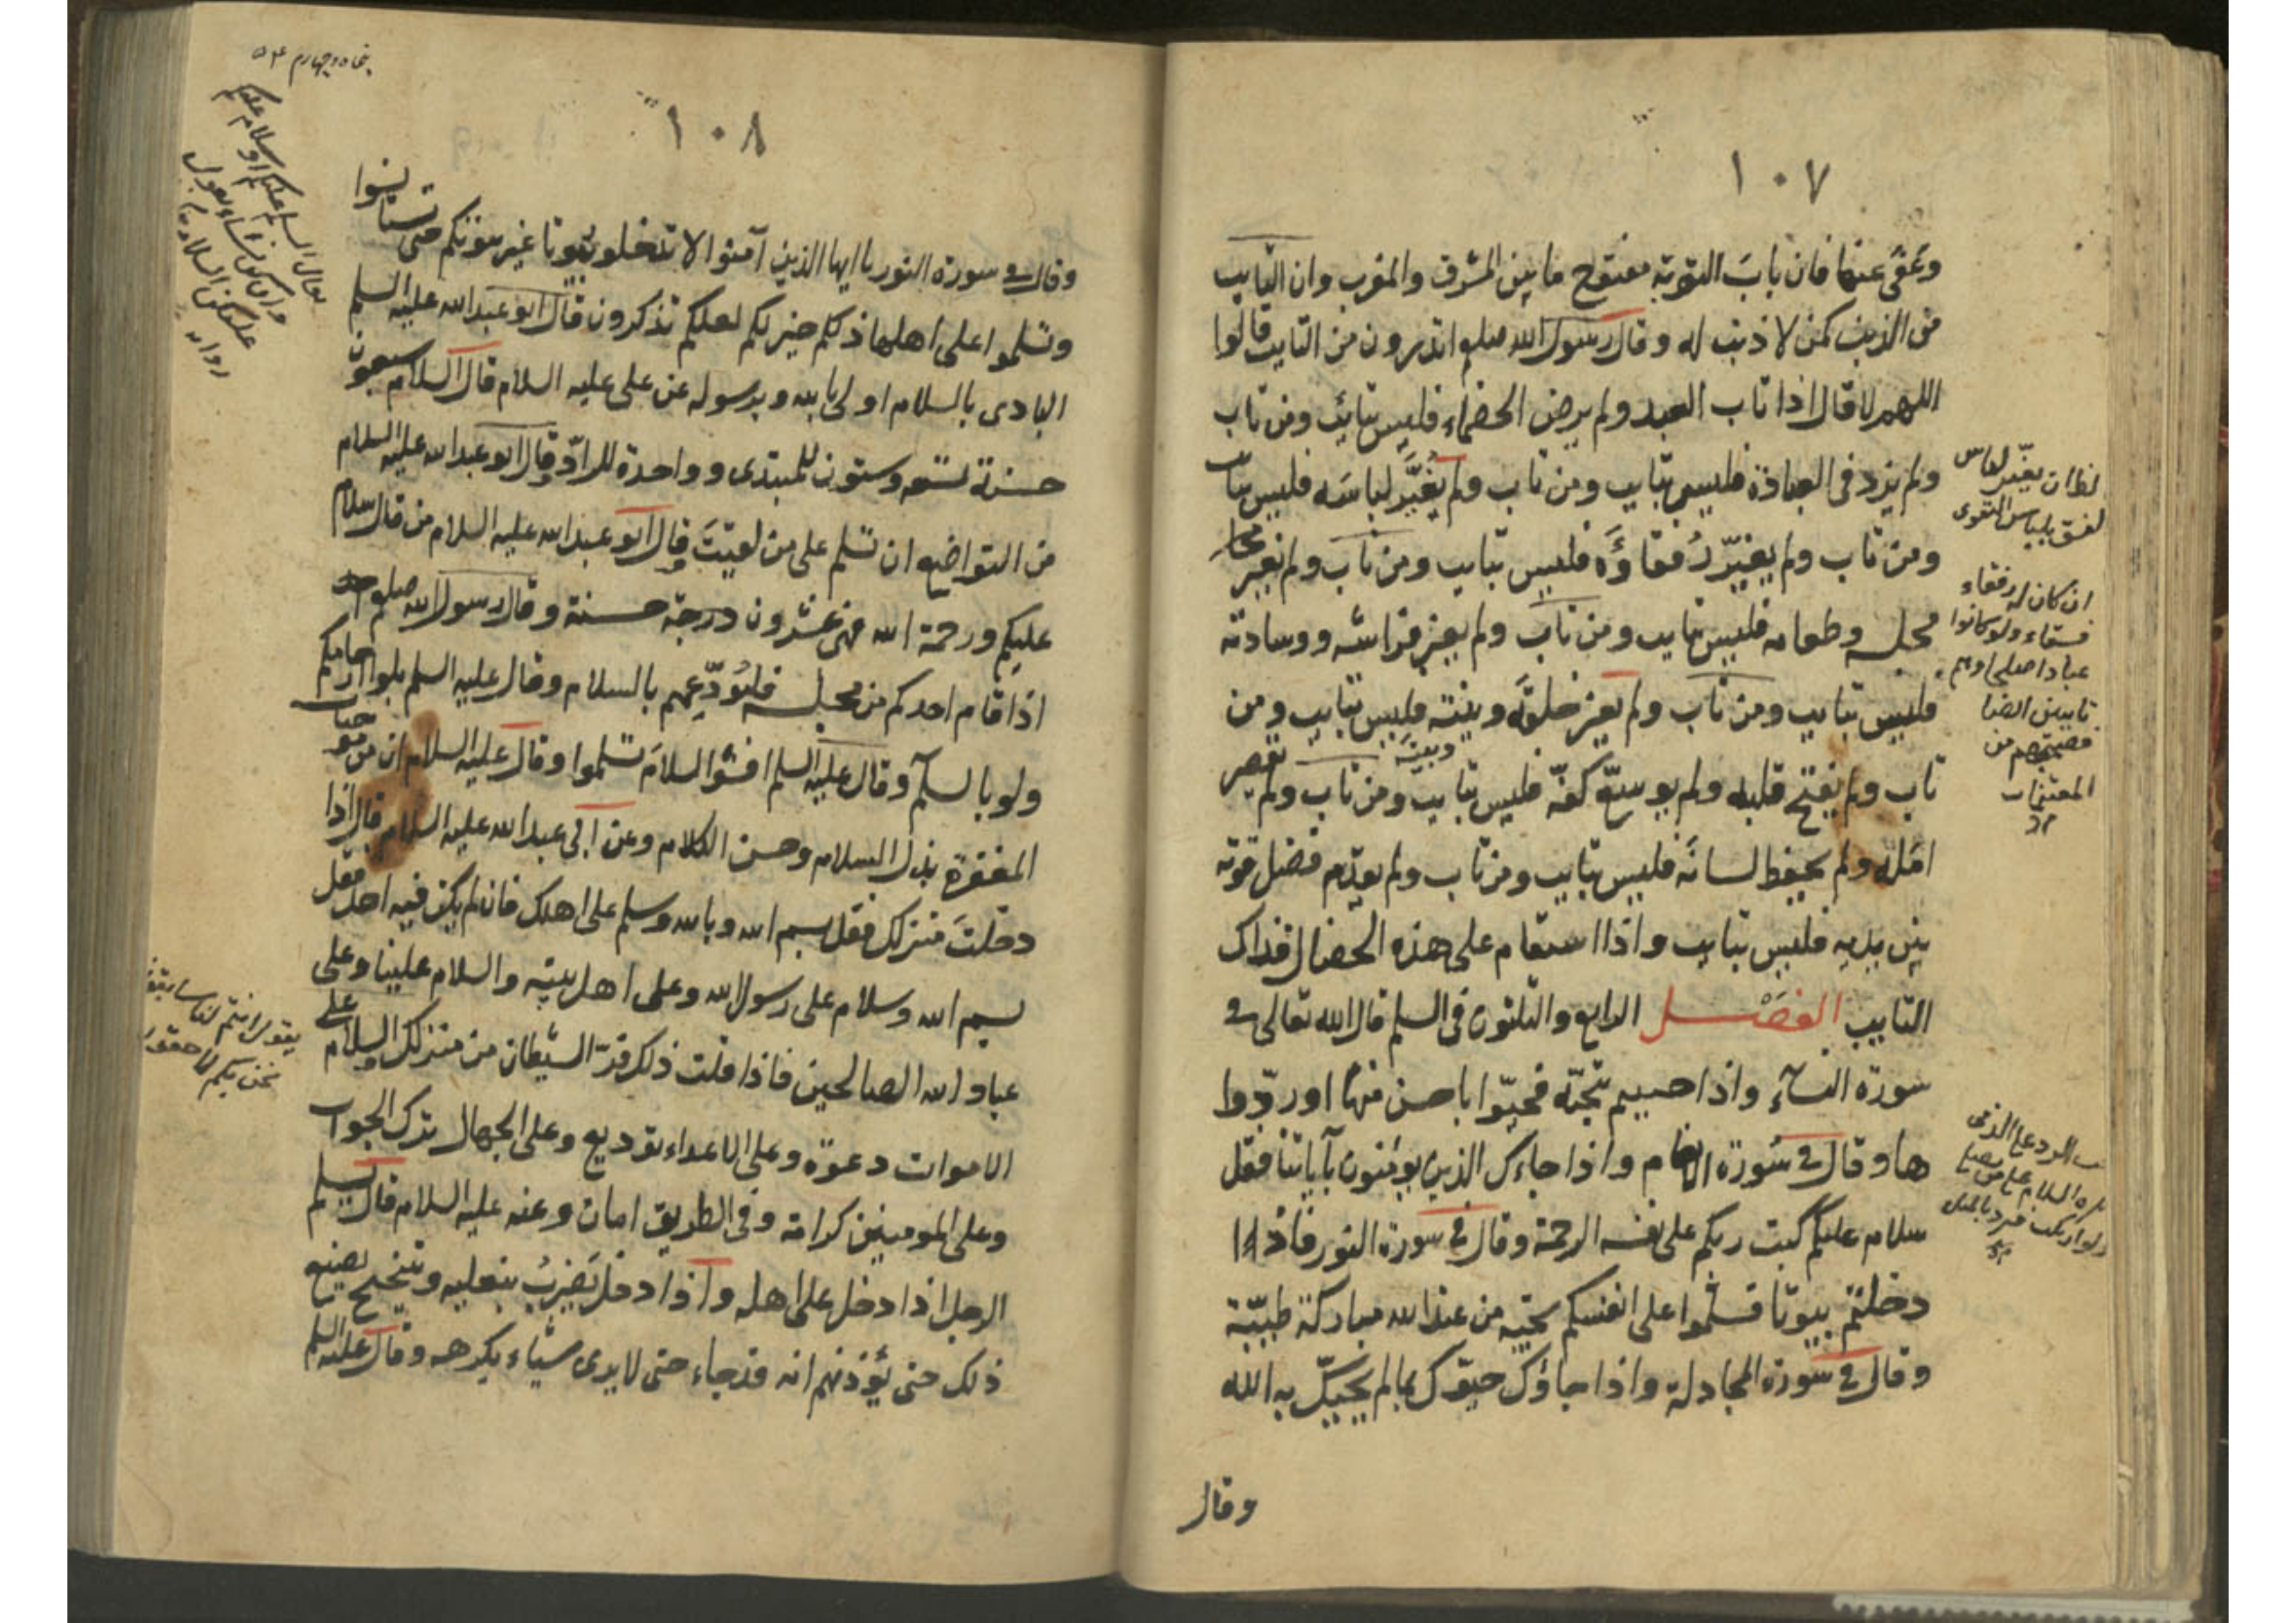 ١٠٧
وعفى عنها فان باب التوبة مفتوح ما بين المشرق والمغرب وان التايب
من الذنب كمن لا ذنب له وقال رسول الله صلعم اتدرون من التايب قالوا
اللهم لا قال اذا تاب العبد ولم يرض الخصماء فليس بتائب ومن تاب
ولم يزد فى العبادة فليس بتايب ومن تاب ولم يُغيّر لباسَه فليس بتايب
ومن تاب ولم يغيّر رُفقاؤَه فليس بتايب ومن تاب ولم يغير
مجلسه وطعامه فليس بتايب ومن تاب ولم يغير فراشه ووسادته
فليس بتايب ومن تاب ولم يغير خلقَه ونيته فليس بتايب ومن
تاب ولم يفتح قلبه ولم يوسّع كفّه فليس بتايب ومن تاب ولم يقصر
امَله ولم يحفظ لسانَه فليس بتايب ومن تاب ولم يقدّم فضل قوته
بين يديه فليس بتايب واذا استقام على هذه الخصال فذاك
التايب الفصل الرابع والثلثون فى السلم قال الله تعالى فى
سورة النسآء واذا حييتم بتحيّة فحيّوا باحسن منها او ردّوا
ها وقال فى سُورة الانعام واذا جاءك الذين يؤمنون بآياتنا فقل
سلام عليكم كتب ربكم على نفسه الرحمة وقال فى سورة النور فاذا
دخلتم بيوتا فسلّموا على انفسكم تحيّة من عند الله مباركة طيّبة
وقال فى سورة المجادلة واذا جاؤك حيّوك بما لم يحيّك به الله
وقال
ان كان له رفقاء
فسقاء ولو كانوا
١٠٨
وقال فى سورة النور يا ايها الذين آمنوا لا تدخلو بيوتا غير بيوتكم حتى تستانسوا
وتسلموا على اهلها ذلكم خير لكم لعلكم تذكرون قال ابو عبد الله عليه السلم
البادى بالسلام اولى بالله وبرسوله عن على عليه السلام قال السلام سبعون
حسنة تسعه وستون للمبتدى وواحدة للرادّ وقال ابو عبد الله عليه السلام
من التواضع ان تسلم على من لقيتَ وقال ابو عبد الله عليه السلام من قال سلام
عليكم ورحمة الله فهى عشرون درجة حسنة وقال رسول الله صلعم
اذا قام احدكم من مجلسه فليُودّعهم بالسلام وقال عليه السلم بلوا ارحامكم
ولو بالسلم وقال عليه السلم افشوا السلامَ تسلموا وقال عليه السلام ان من موجبات
المغفرة بذل السلام وحسن الكلام وعن ابى عبد الله عليه السلام قال اذا
دخلتَ منزلك فقل بسم الله وبالله وسلم على اهلك فان لم يكن فيه احد فقل
بسم الله وسلام على رسول الله وعلى اهل بيته والسلام علينا وعلى
عباد الله الصالحين فاذا قلت ذلك فرّ الشيطان من منزلك والسلام على
الاموات دعوة وعلى الاعداء توديع وعلى الجهال ترك الجواب
وعلى المومنين كرامة وفى الطريق امان وعنه عليه السلام قال يسلم
الرجل اذا دخل على اهله واذا دخل يَضربُ بنعليه ويتنحنح يصنع
ذلك حتى يؤذنهم انه قد جاء حتى لا يرى شياء يكرهه وقال عليه السلم